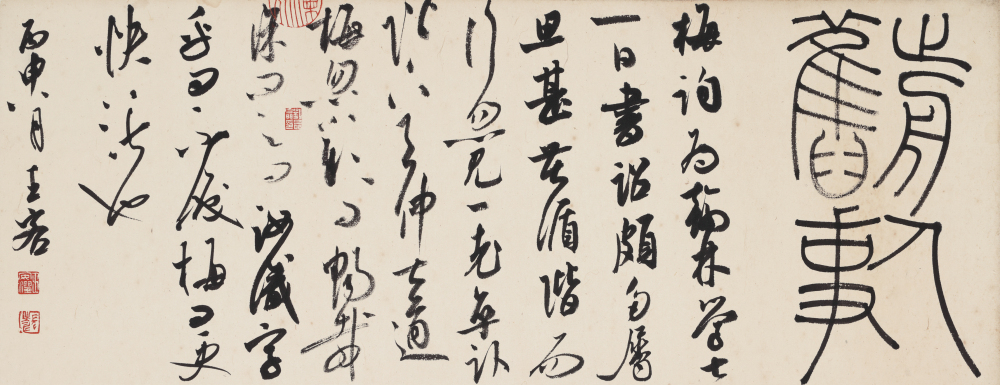 前人
舊事
梅詢為翰林學士
一日書詔頗多屬
思甚苦循階而
行忽見一老卒臥
欠伸甚適
梅忽歎曰暢哉
徐問之曰汝識字
乎曰不識梅曰更
快活也
丙申八月王容